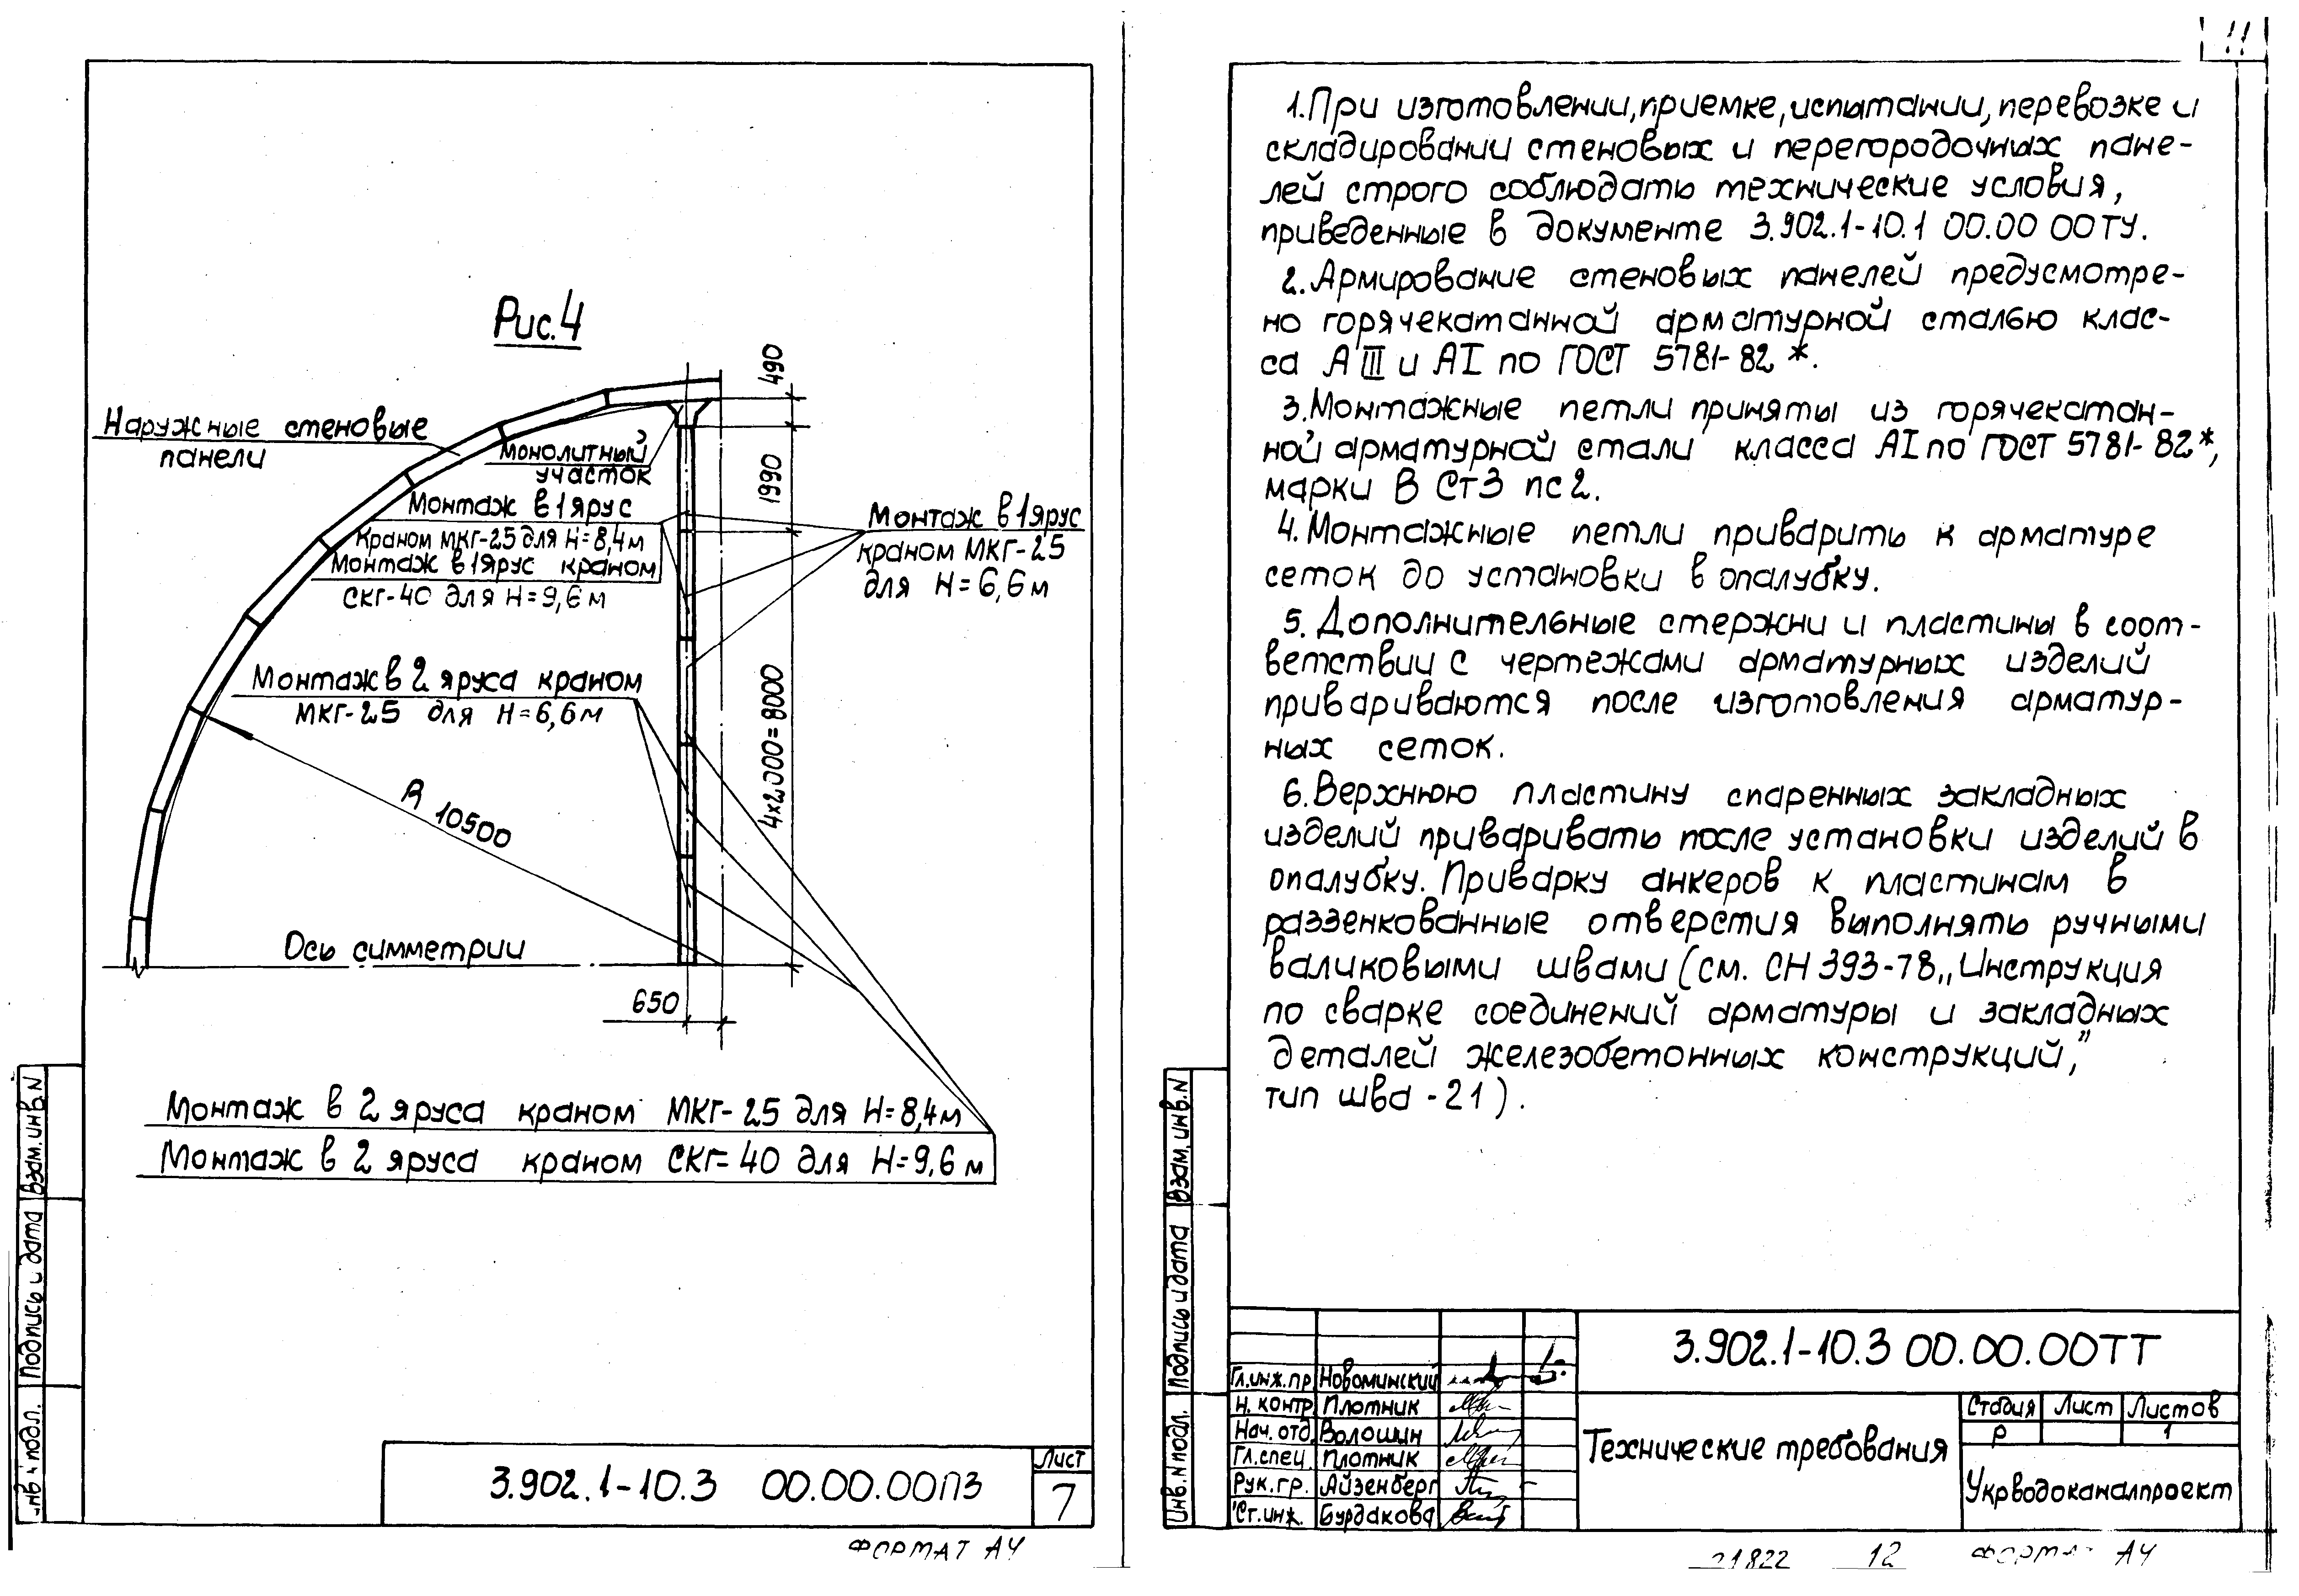 Рис.4
490
Наружные стеновые
панели
Монолитный
участок
1990
Монтаж в 1 ярус
Краном МКГ-25 для Н=8,4м
Монтаж в 1 ярус краном
СКГ-40 для Н=9,6м
Монтаж в 1 ярус
краном МКГ-25
для Н=6,6м
Монтаж в 2 яруса краном
МКГ-25 для Н=6,6м
4х2000=8000
R 10500
Ось симметрии
650
Монтаж в 2 яруса краном МКГ-25 для Н=8,4м
Монтаж в 2 яруса краном СКГ-40 для Н=9,6м
Взам.инв.N
Подпись и дата
Инв.N подл.
3.902.1-10.3 00.00.00ПЗ
Лист
7
ФОРМАТ А4
11
1.При изготовлении,приемке,испытании,перевозке и
складировании стеновых и перегородочных пане-
лей строго соблюдать технические условия,
приведенные в документе 3.902.1-10.1 00.00 00ТУ.
2.Армирование стеновых панелей предусмотре-
но горячекатанной арматурной сталью клас-
са АIII и АI по ГОСТ 5781-82*.
3.Монтажные петли приняты из горячекатан-
ной арматурной стали класса АI по ГОСТ 5781-82*,
марки В Ст3 пс2.
4.Монтажные петли приварить к арматуре
сеток до установки в опалубку.
5. Дополнительные стержни и пластины в соот-
ветствии с чертежами арматурных изделий
привариваются после изготовления арматур-
ных сеток.
6.Верхнюю пластину спаренных закладных
изделий приваривать после установки изделий в
опалубку. Приварку анкеров к пластинам в
раззенкованные отверстия выполнять ручными
валиковыми швами (см. СН 393-78 „Инструкция
по сварке соединений арматуры и закладных
деталей железобетонных конструкций,"
тип шва -21).
Взам.инв.N
Подпись и дата
Инв.N подл.
3.902.1-10.3 00.00.00ТТ
Гл.инж.пр Новоминский
Н. контр. Плотник
Нач. отд. Волошин
Гл.спец. Плотник
Рук.гр. Айзенберг
Ст.инж. Бурдакова
Технические требования
Стадия Лист Листов
Р 1
Укрводоканалпроект
21822 12 ФОРМАТ А4